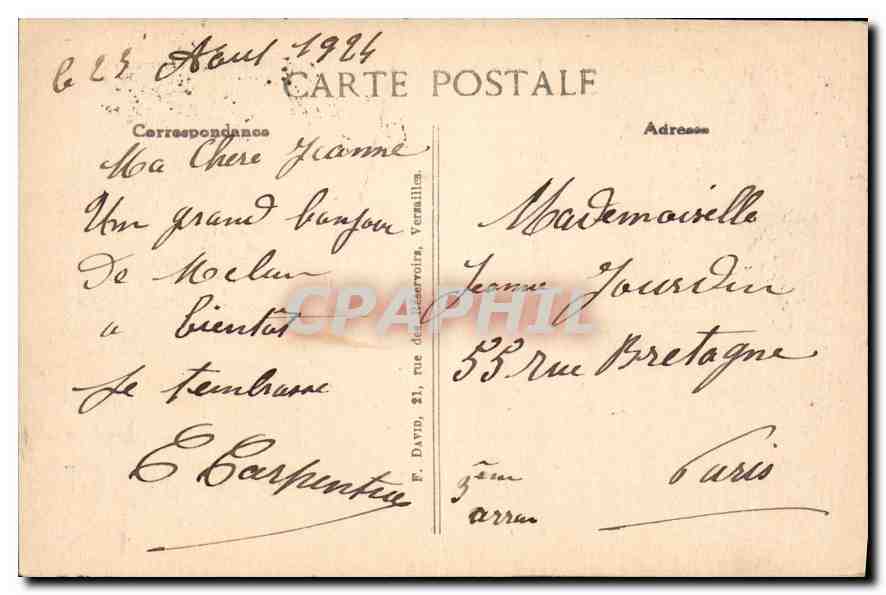 le 25 Aout 1924
CARTE POSTALE
Correspondance
Ma Chere Jeanne
Un grand bonjour
De Melun
a bientôt
Je t'embrasse
E Carpentier
F. DAVID, 21, rue des Réservoirs, Versailles.
Adresse
Mademoiselle
Jeanne Jourdin
55 rue Bretagne
Paris
3ème
arron
CPAPHIL